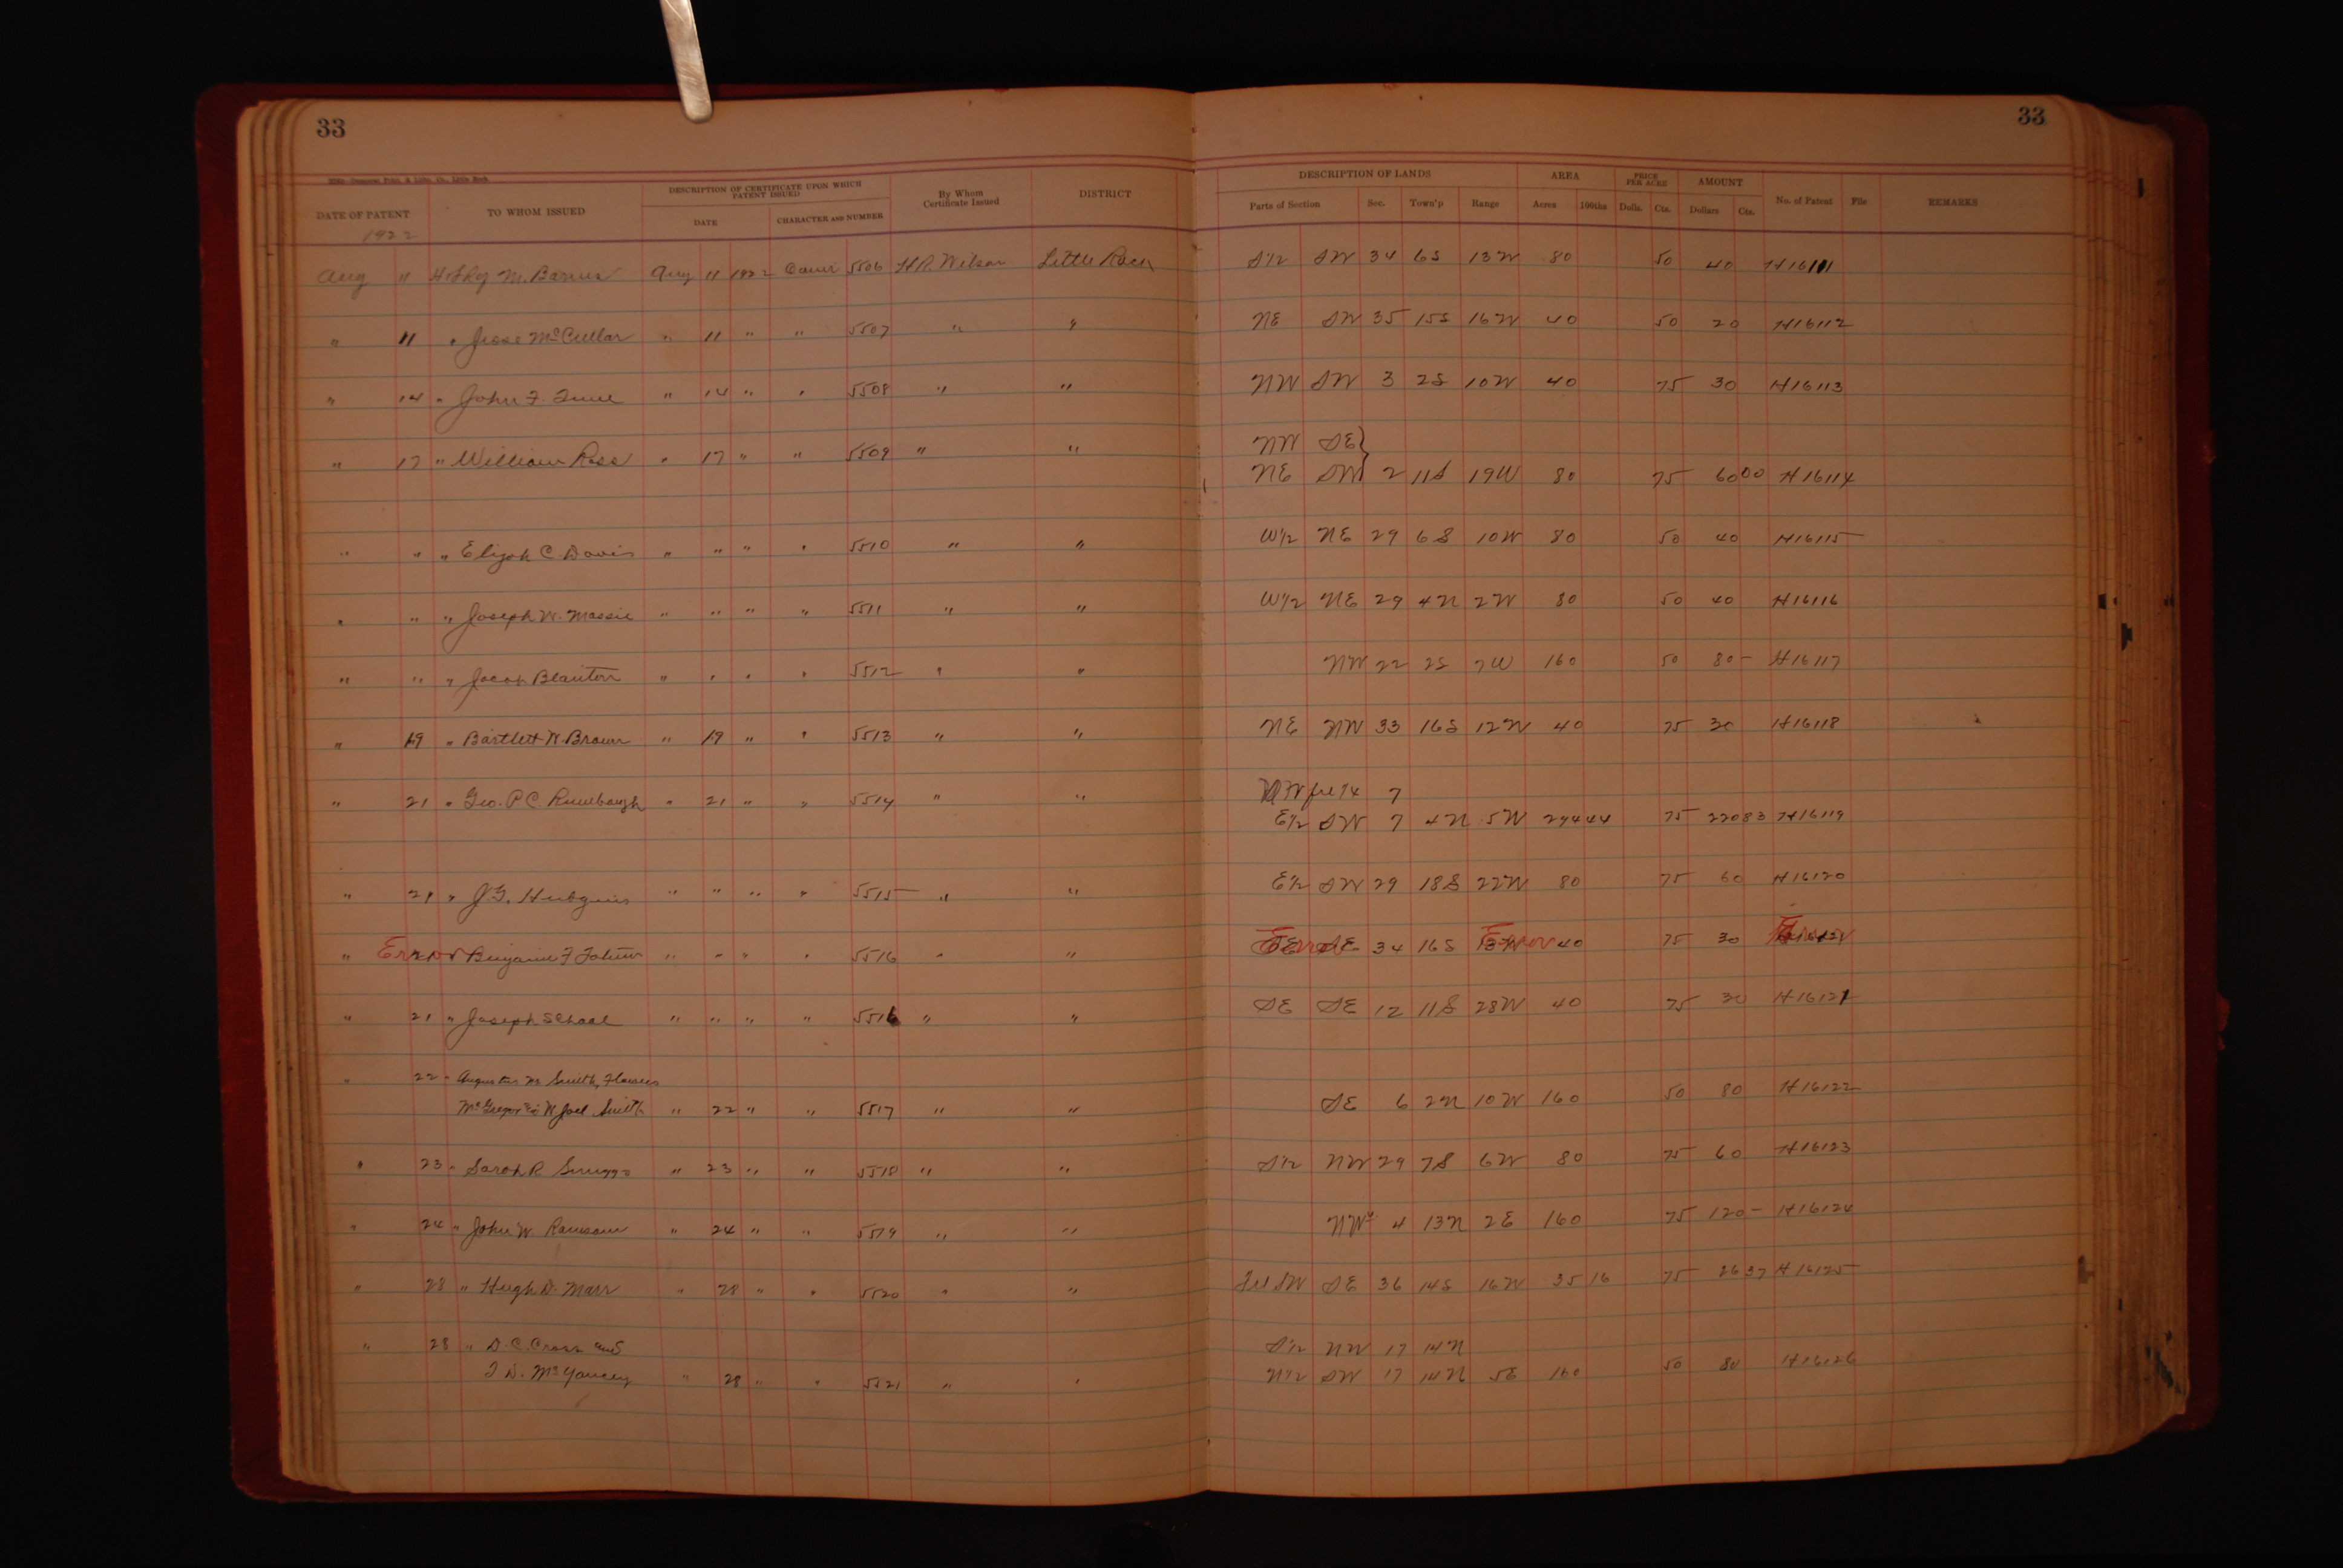 33 33
DATE OF PATENT TO WHOM ISSUED DESCRIPTION OF CERTIFICATE UPON WHICH PATENT ISSUED By Whom Certificate Issued DISTRICT DESCRIPTION OF LANDS AREA PRICE PER ACRE AMOUNT No. of Patent File REMARKS
DATE CHARACTER AND NUMBER Parts of Section Sec. Town'p Range Acres 100ths Dolls. Cts. Dollars Cts.
1922
Aug " M. Barnes Aug 11 1922 5506 H.R. Wilson Little Rock S½ SW 34 6S 13W 80 50 40 H16111
" 11 " Jesse McCullar " 11 " " 5507 " " NE SW 35 15S 16W 40 50 20 H16112
" 14 " John F. " 14 " " 5508 " " NW SW 3 2S 10W 40 75 30 H16113
" 17 " William Ross " 17 " " 5509 " " NW SE}
NE SW} 2 11S 19W 80 75 60 00 H16114
" " " Elijah C. Davis " " " " 5510 " " W½ NE 29 6S 10W 80 50 40 H16115
" " " Joseph W. Massie " " " " 5511 " " W½ NE 29 4N 2W 80 50 40 H16116
" " " Jacob Blanton " " " " 5512 " " NW 22 2S 7W 160 50 80 – H16117
" 19 " Bartlett W. Brown " 19 " " 5513 " " NE NW 33 16S 12W 40 75 30 H16118
" 21 " Geo. P.C. Rumbaugh " 21 " " 5514 " " 7
E½ SW 7 4N 5W 294 44 75 220 83 H16119
" 21 " J.G. Hudgins " " " " 5515 " " E½ SW 29 18S 22W 80 75 60 H16120
" Error 21 " Benjamin F. " " " " 5516 " " Error SE 34 16S Error 40 75 30 Error
" 21 " Joseph School " " " " 5516 " " SE SE 12 11S 28W 40 75 30 H16121
" 22 " Augustus M. Smith, Flowers
McGregor & W. Joel Smith " 22 " " 5517 " " SE 6 2N 10W 160 50 80 H16122
" 23 " Sarah R. Scruggs " 23 " " 5518 " " S½ NW 29 7S 6W 80 75 60 H16123
" 24 " John W. Ransom " 24 " " 5519 " " NW¼ 4 13N 2E 160 75 120 – H16124
" 28 " Hugh D. Marr " 28 " " 5520 " " SW SE 36 14S 16W 35 16 75 26 37 H16125
" 28 " D.C. Cross and S½ NW 17 14N
T.D. McYancey " 28 " " 5521 " " N½ SW 17 14N 5E 160 50 80 H16126